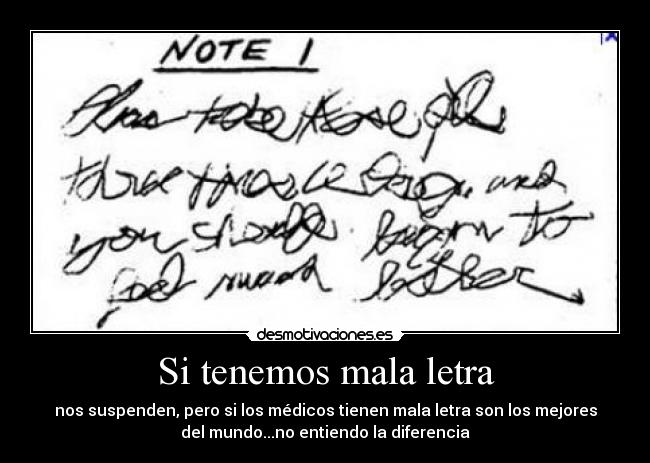 NOTE 1
Please take these pills
three times a day, and
you should begin to
feel much better
desmotivaciones.es
Si tenemos mala letra
nos suspenden, pero si los médicos tienen mala letra son los mejores
del mundo...no entiendo la diferencia